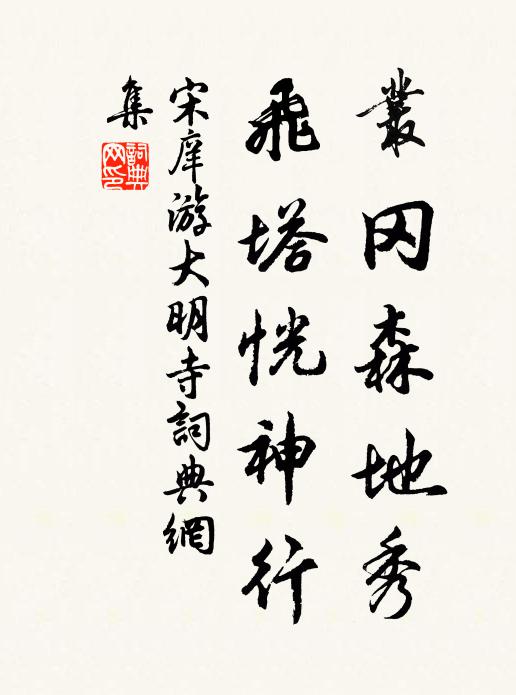 叢冈森地秀
飛塔恍神行
宋庠游大明寺詞典網
集
詞典
网印